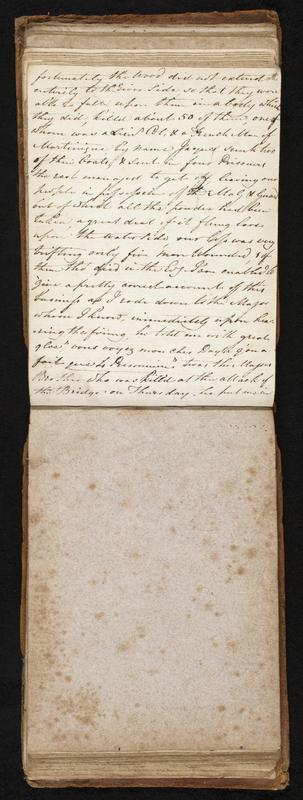 fortunately the Wood did not extend
entirely to the River Side so that they were
able to fall upon them in a body which
they did, killed about 50 of them, one of
Whom was a Lieut Col. & a French Man of
Martinique by name Jaques
of their Boats & sent in four Prisoners
the rest managed to get off leaving our
people in possession of the & Guard
out of which all the powder had been
taken, a great deal of it flung loose
upon the waterside our loss was very
trifling only five men Wounded, 3 of
them this died in the I am enabled to
give a pretty correct account of this
business as I rode down to the Major
whom I heard, immediately upon hea-
ring the firing, he told me with great
glee "vous voyez mon cher on a
fait quatre Prisonniers" twas this Major
Brother who was killed at the attack of
the Bridge on Thursday, he put me in